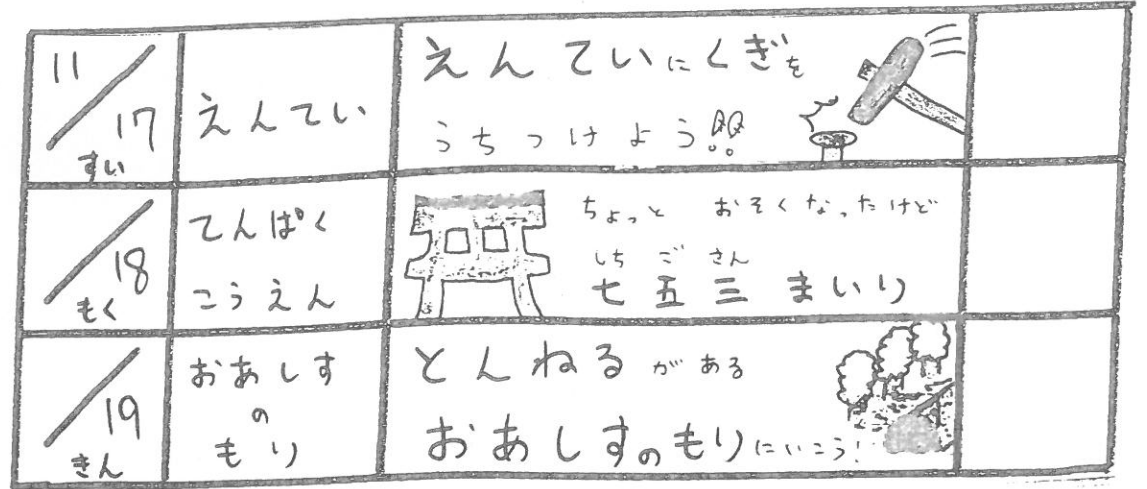 11/17
すい
えんてい
えんていにくぎを
うちつけよう!!
/18
もく
てんぱく
こうえん
ちょっと おそくなったけど
しち ご さん
七五三まいり
/19
きん
おあしす
の
もり
とんねるがある
おあしすのもりにいこう!